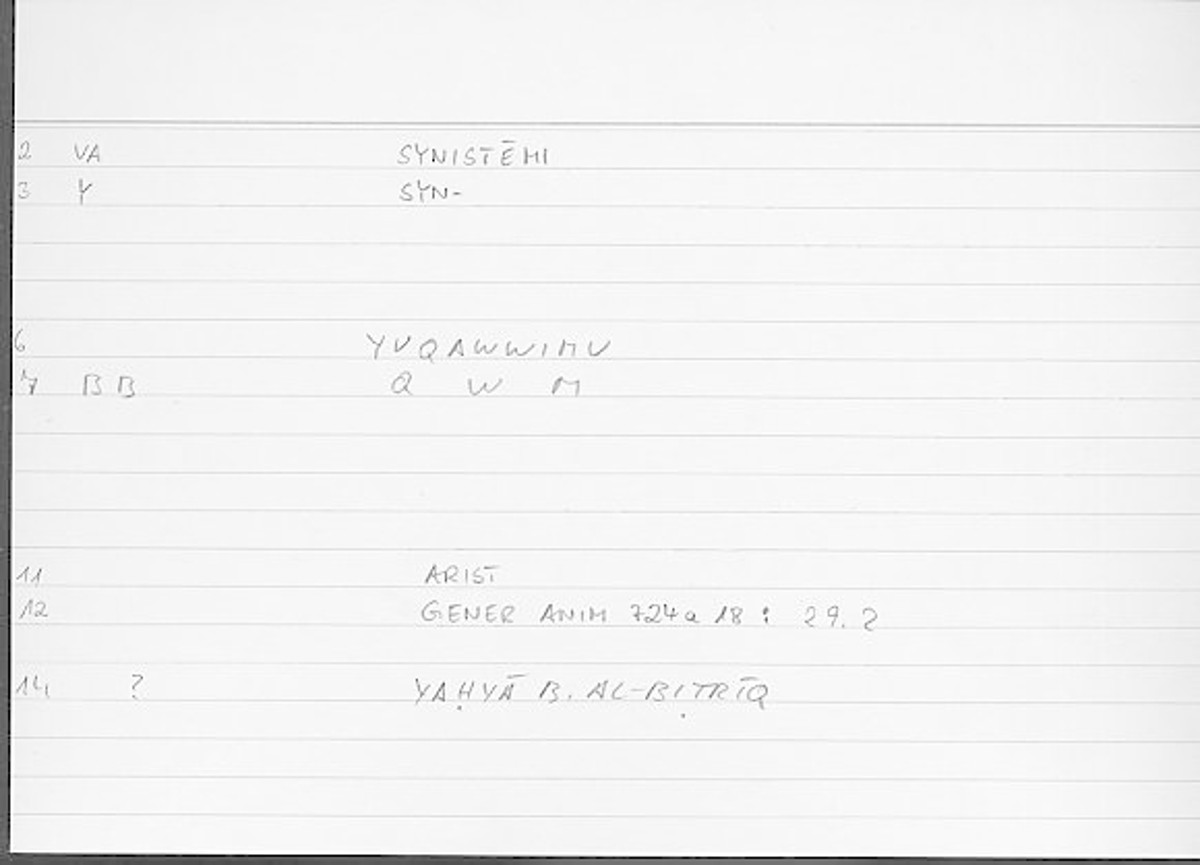 2 VA SYNISTĒMI
3 Y SYN-
6 YUQAWWIMU
7 BB Q W M
11 ARIST
12 GENER ANIM 724a 18 : 29.2
14 ? YAḤYĀ B. AL-BIṬRĪQ